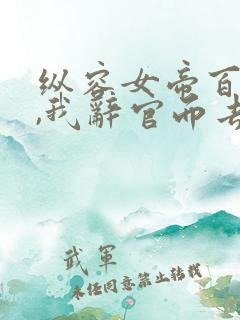 纵容女帝百
,我辞官而去
武军
未经同意禁止转载